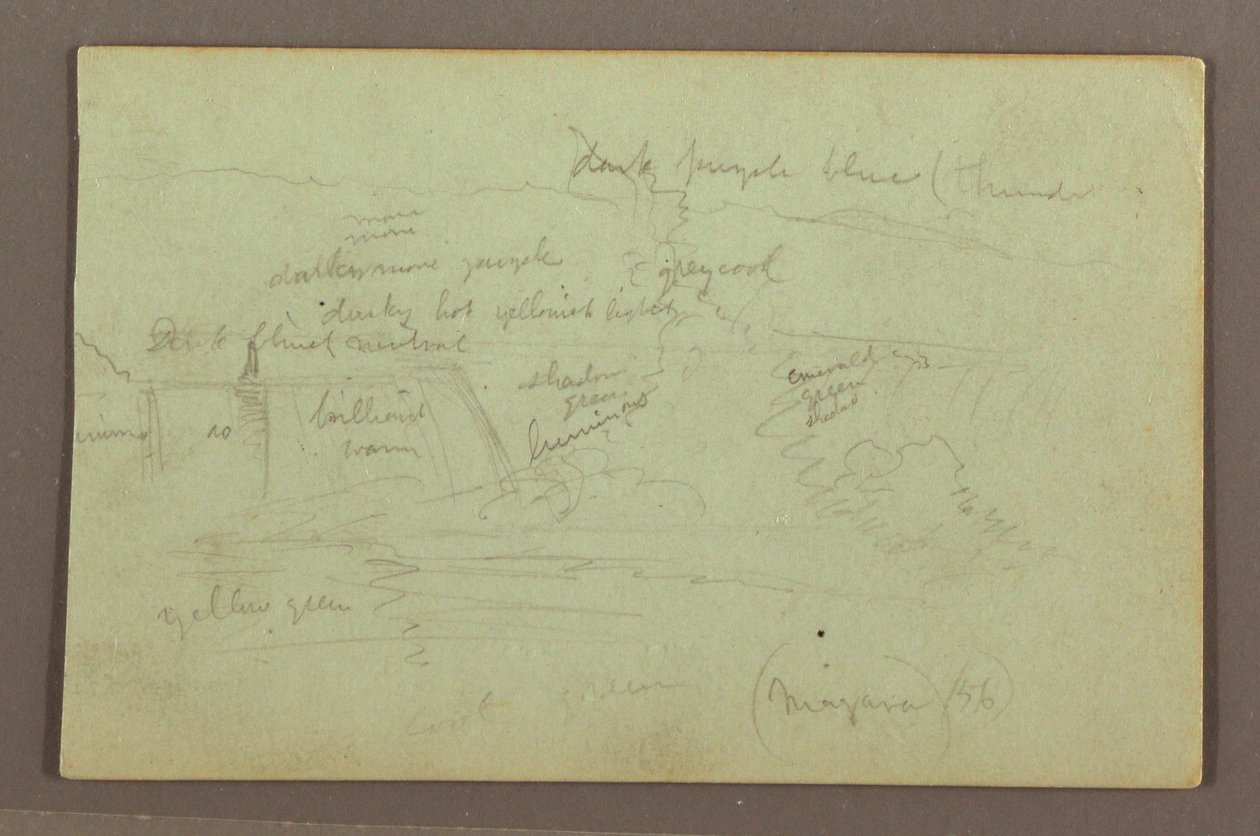 dark purple blue (thunder
more
more
darky more purple
grey cool
dusky hot yellowish light
Dark bluish neutral
shadow
green
luminous
emerald
green
shadow
do
brilliant
warm
yellow green
cool green
(Niagara) /56)